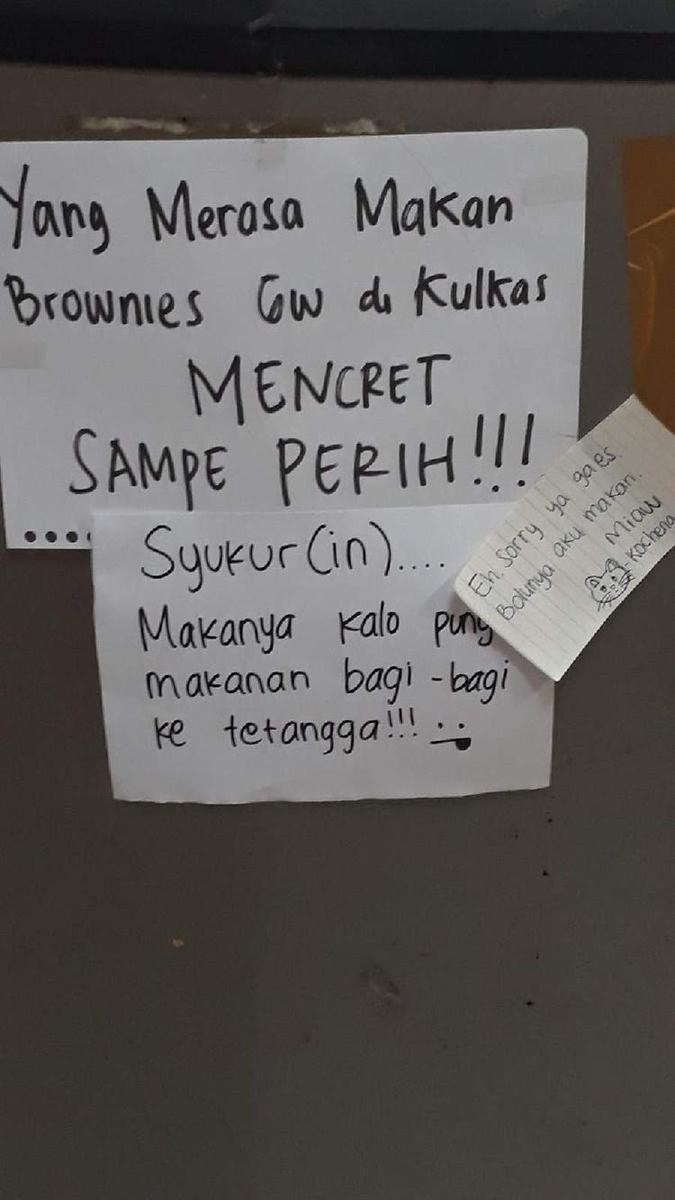 Yang Merasa Makan
Brownies Gw di Kulkas
MENCRET
SAMPE PERIH!!!
Syukur(in)....
Makanya kalo puny
makanan bagi-bagi
ke tetangga!!!
Eh. Sorry ya gaes.
Bolunya aku makan.
Miaw
Kochena